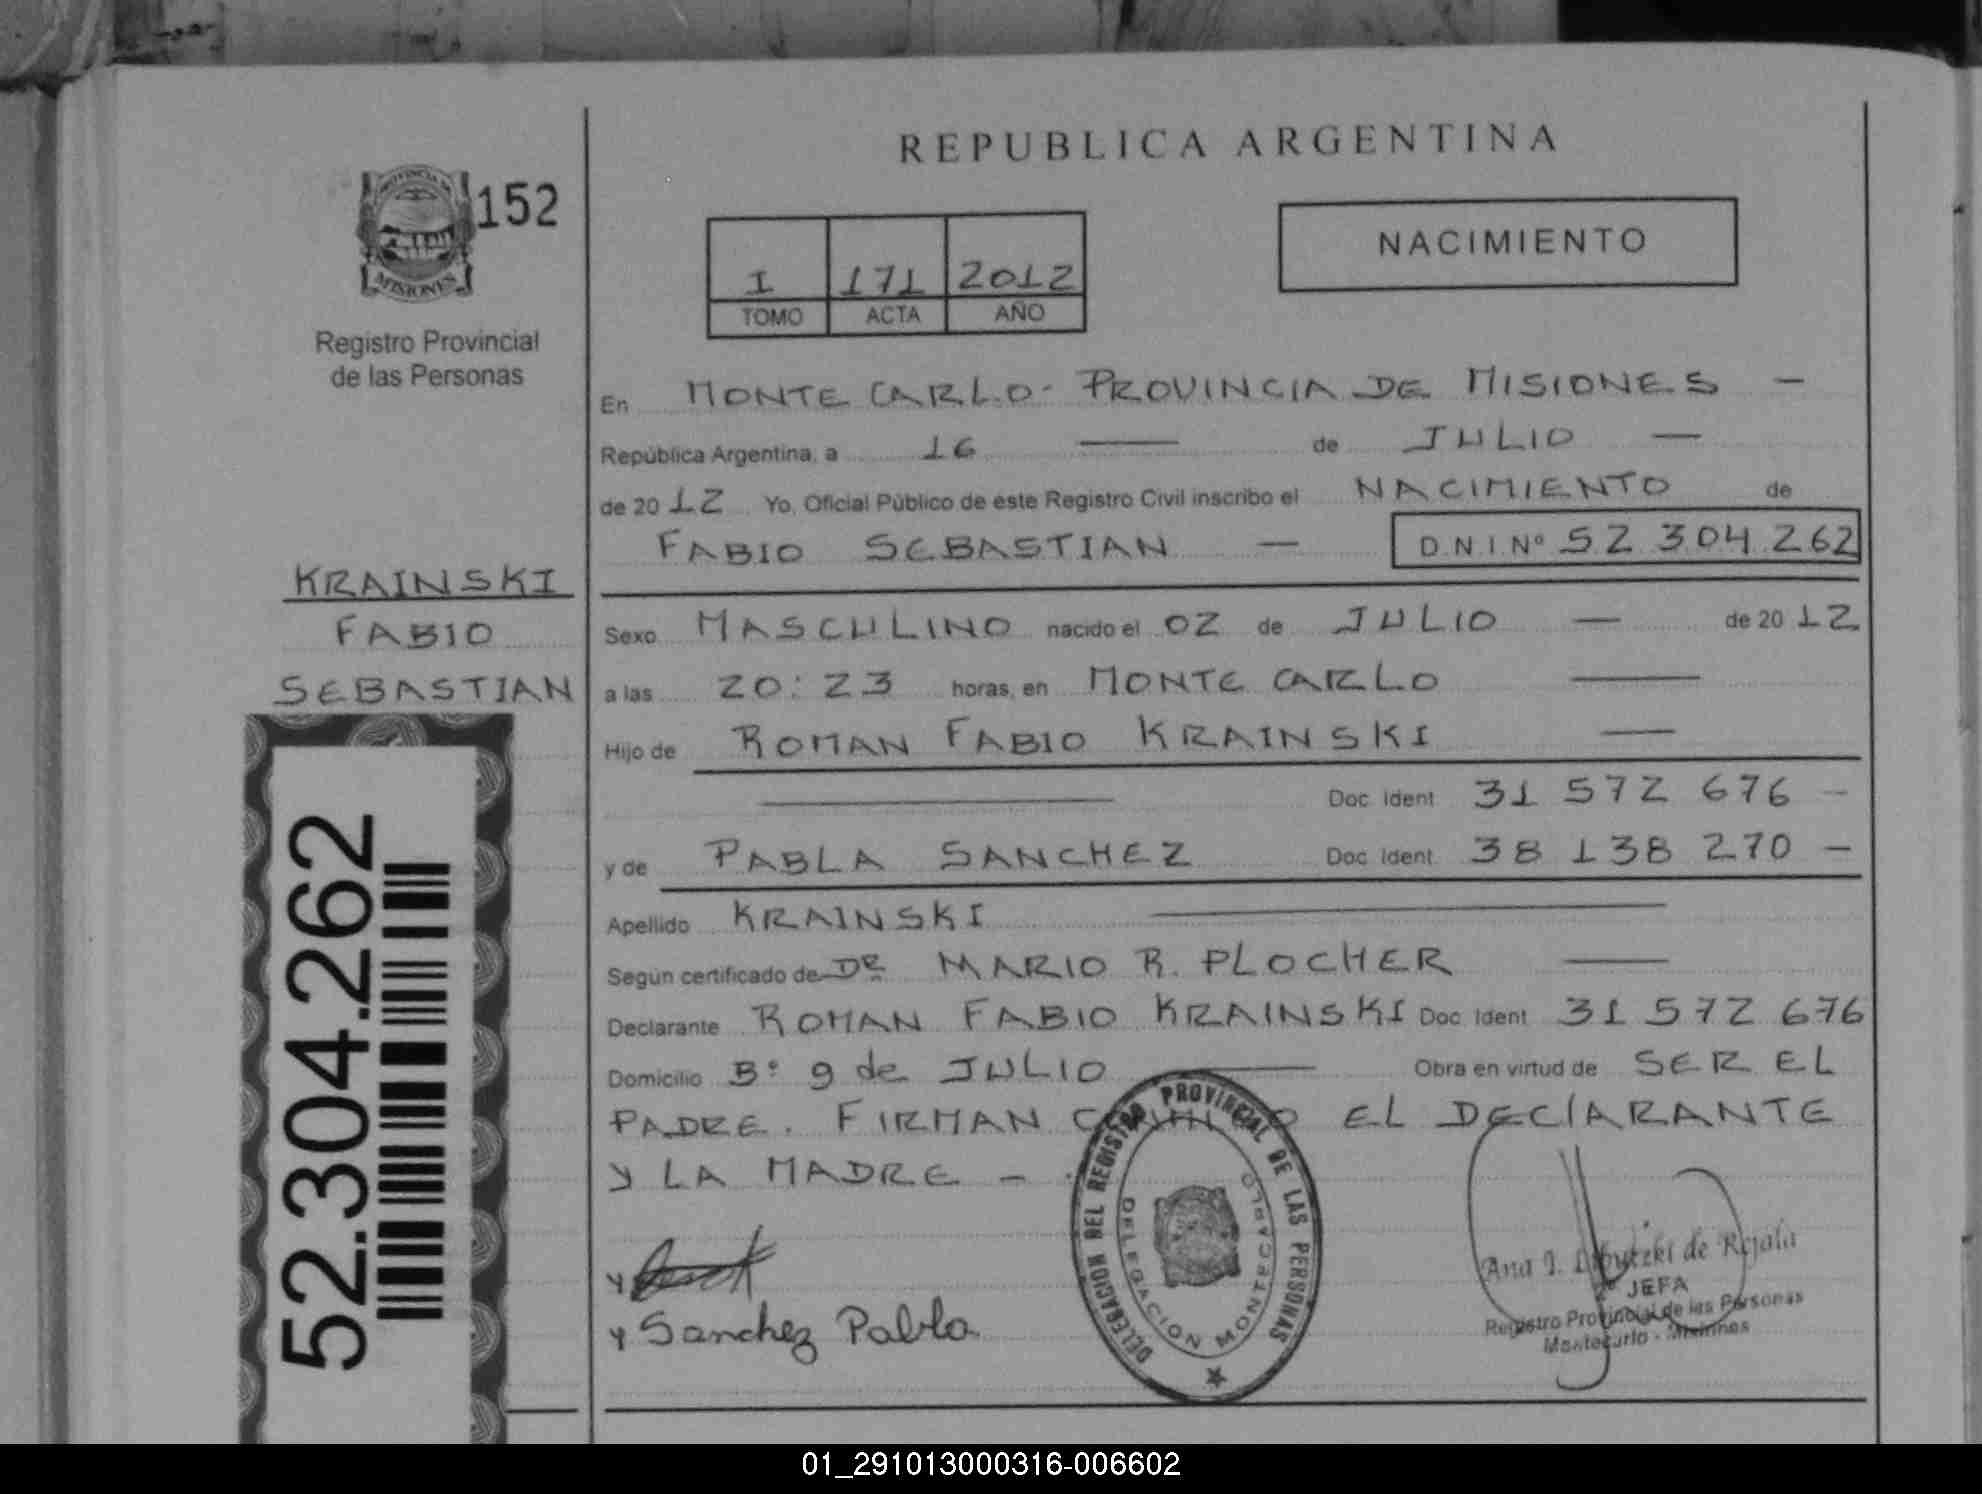 REPUBLICA ARGENTINA
PROVINCIA DE
MISIONES
152
Registro Provincial
de las Personas
NACIMIENTO
I 171 2012
TOMO ACTA AÑO
En MONTE CARLO - PROVINCIA DE MISIONES —
República Argentina, a 16 — de JULIO —
de 2012 Yo, Oficial Público de este Registro Civil inscribo el NACIMIENTO de
FABIO SEBASTIAN — D.N.I Nº 52 304 262
KRAINSKI
FABIO
SEBASTIAN
52.304.262
Sexo MASCULINO nacido el 02 de JULIO — de 2012
a las 20:23 horas, en MONTE CARLO —
Hijo de ROMAN FABIO KRAINSKI —
— Doc. Ident. 31 572 676 —
y de PABLA SANCHEZ Doc. Ident. 38 138 270 —
Apellido KRAINSKI —
Según certificado de DR MARIO R. PLOCHER —
Declarante ROMAN FABIO KRAINSKI Doc. Ident. 31 572 676
Domicilio Bº 9 de JULIO — Obra en virtud de SER EL
PADRE. FIRMAN EL DECLARANTE
Y LA MADRE -
Y
Y Sanchez Pabla
DELEGACION DEL REGISTRO PROVINCIAL DE LAS PERSONAS
DELEGACION MONTECARLO
Ana I. de Rojala
JEFA
Registro Provincial de las Personas
Montecarlo - Misiones
01_291013000316-006602